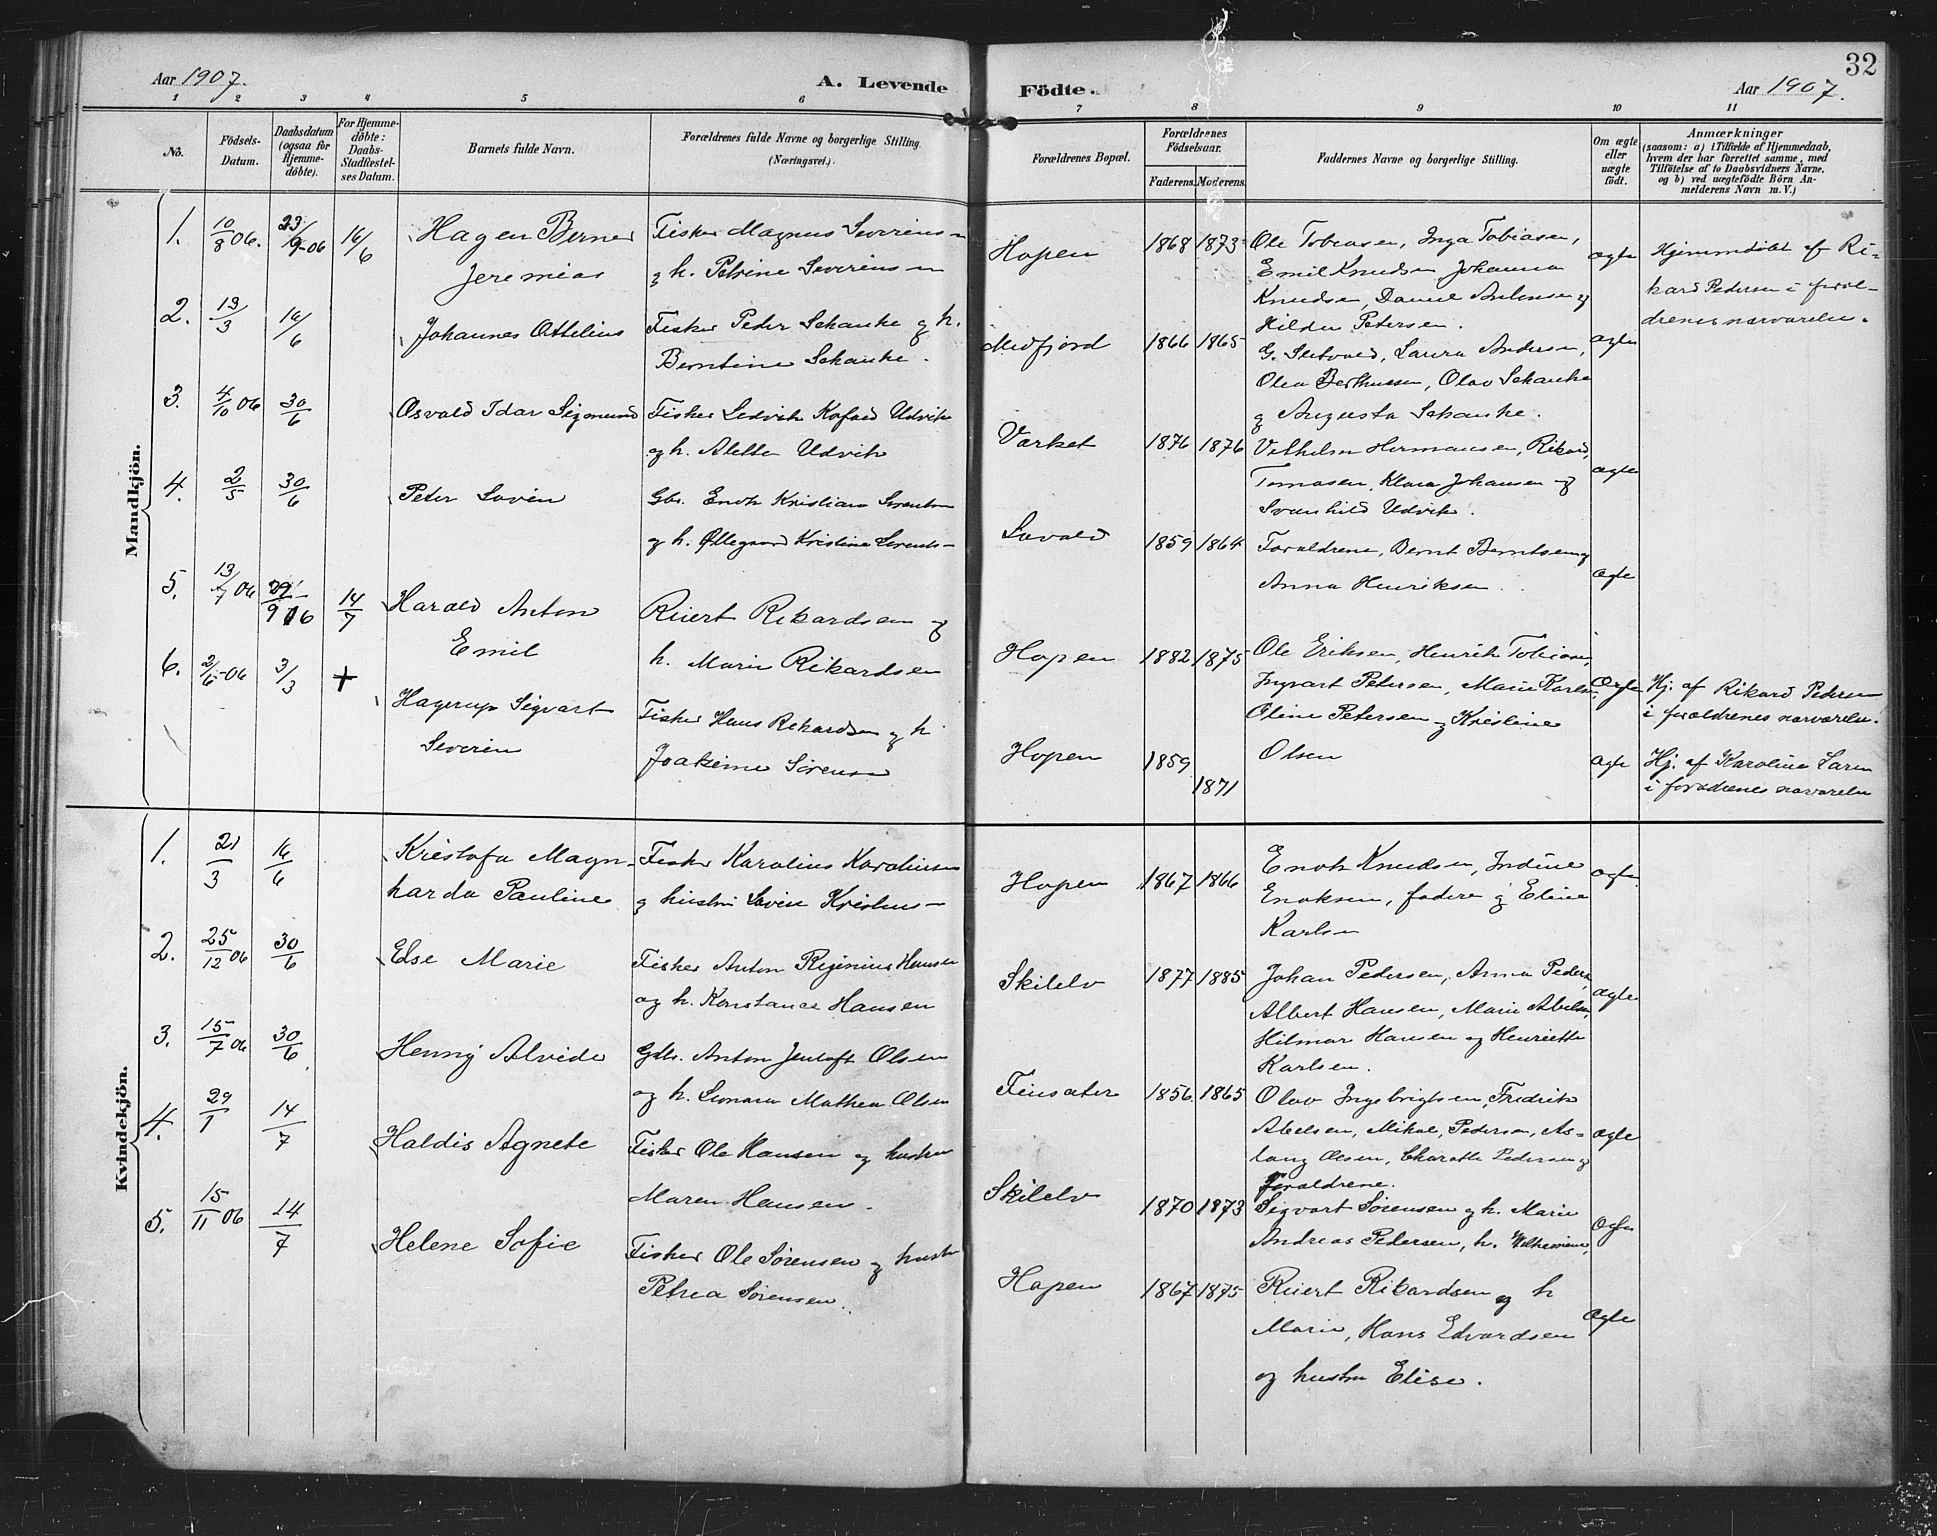 Aar 1907.
A. Levende
Födte.
32
Aar 1907.
1 2 3 4 5 6 7 8 9 10 11
No.
Födsels-
Datum.
Daabsdatum
(ogsaa for
Hjemme-
döbte).
For Hjemme-
döbte:
Daabs-
Stadfæstel-
ses Datum.
Barnets fulde Navn.
Forældrenes fulde Navne og borgerlige Stilling.
(Næringsvei.)
Forældrenes Bopæl.
Forældrenes
Födselsaar.
Faderens. Moderens.
Faddernes Navne og borgerlige Stilling.
Om ægte
eller
uægte
födt.
Anmærkninger
(saasom: a) i Tilfælde af Hjemmedaab,
hvem der har forrettet samme, med
Tilföielse af to Daabsvidners Navne,
og b) ved uægtefödte Börn An-
melderens Navn m. V.)
Mandkjön.
1. 10/8 06. 23/9-06 16/6 Hagen Berner
Jeremias
Fisker Magnus Severins-n
og h. Petrine Severins-n
Hopen 1868 1873
Ole Tobiasen, Inga Tobiasen,
Emil Knudsen Johanna
Knudsen, Daniel Antonsen og
Hilda Petersen.
ægte
Hjemmedøbt af Ri-
kard Pedersen i foræl-
drenes nærværelse.
2. 13/3 16/6 Johannes Ottelius
Fisker Peder Schanke og h.
Berntine Schanke.
Midfjord 1866 1865
Laura Andersen,
Olea Berthusen, Olav Schanke
og Augusta Schanke.
ægte
3. 4/10 06 30/6 Osvald Idar Sigmund
Fisker Ledvik Kofoed Udvik
og h. Alette Udvik
Værket 1876 1876
Vilhelm Hermansen, Rikard
Tomasen, Klara Johansen og
Svanhild Udvik.
ægte
4. 2/5 30/6 Peter Lovin
Gbr. Enok Kristian Lorents-n
og h. Øllegaard Kristine Lorents-
Lovold 1859 1864
Forældrene, Bernt Berntsen og
Anna Henriksen.
ægte
5. 13/7 06 29/9 06 14/7 Harald Anton
Emil
Riert Rikardsen og
h. Marie Rikardsen
Hopen 1882 1875
Ole Eriksen, Henrik Tobiasen,
Ingvart Petersen, Marie Karlsen,
Oline Petersen og Kristine
Olsen
ægte
Hj. af Rikard Pedersen
i forældrenes nærværelse.
6. 2/6-06 3/3 + Hagerup Sigvart
Severin
Fisker Hans Rikardsen og h
Joakime Sørensen
Hopen 1859 1871
ægte
Hj. af Karoline Larsen
i forældrenes nærværelse
Kvindekjön.
1. 21/3 16/6 Kristofa Magn-
harda Pauline
Fisker Karolius Karoliusen
og hustru Lovise Kristens-
Hopen 1867 1866
Enok Knudsen, Indine
Enoksen, fadere og Eline
Karlsen
ægte.
2. 25/12 06 30/6 Else Marie
Fisker Anton Reginius Hansen
og h. Konstance Hansen
Skilelv 1877 1885
Johan Pedersen, Anna Peders.
Albert Hansen, Marie Abelsen,
Hilmar Hansen og Henriette
Karlsen.
ægte
3. 15/7 06 30/6 Henny Alvide
Gdb. Anton Jentoft Olsen
og h. Leonara Mathea Olsen
Finsæter 1856 1865
Olav Ingebrigtsen, Fredrik
Abelsen, Mikal Pedersen, As-
laug Olsen, Charotte Pedersen og
Forældrene.
ægte
4. 29/1 14/7 Haldis Agnete
Fisker Ole Hansen og hustru
Maren Hansen.
Skilelv 1870 1873
Sigvart Sørensen og h. Marie
Andreas Pedersen, h. Wilhelmine,
ægte
5. 15/11 06 14/7 Helene Sofie
Fisker Ole Sørensen og hustru
Petrea Sørensen.
Hopen 1867 1875
Riert Rikardsen og h
Marie, Hans Edvardsen
og hustru Elise.
ægte